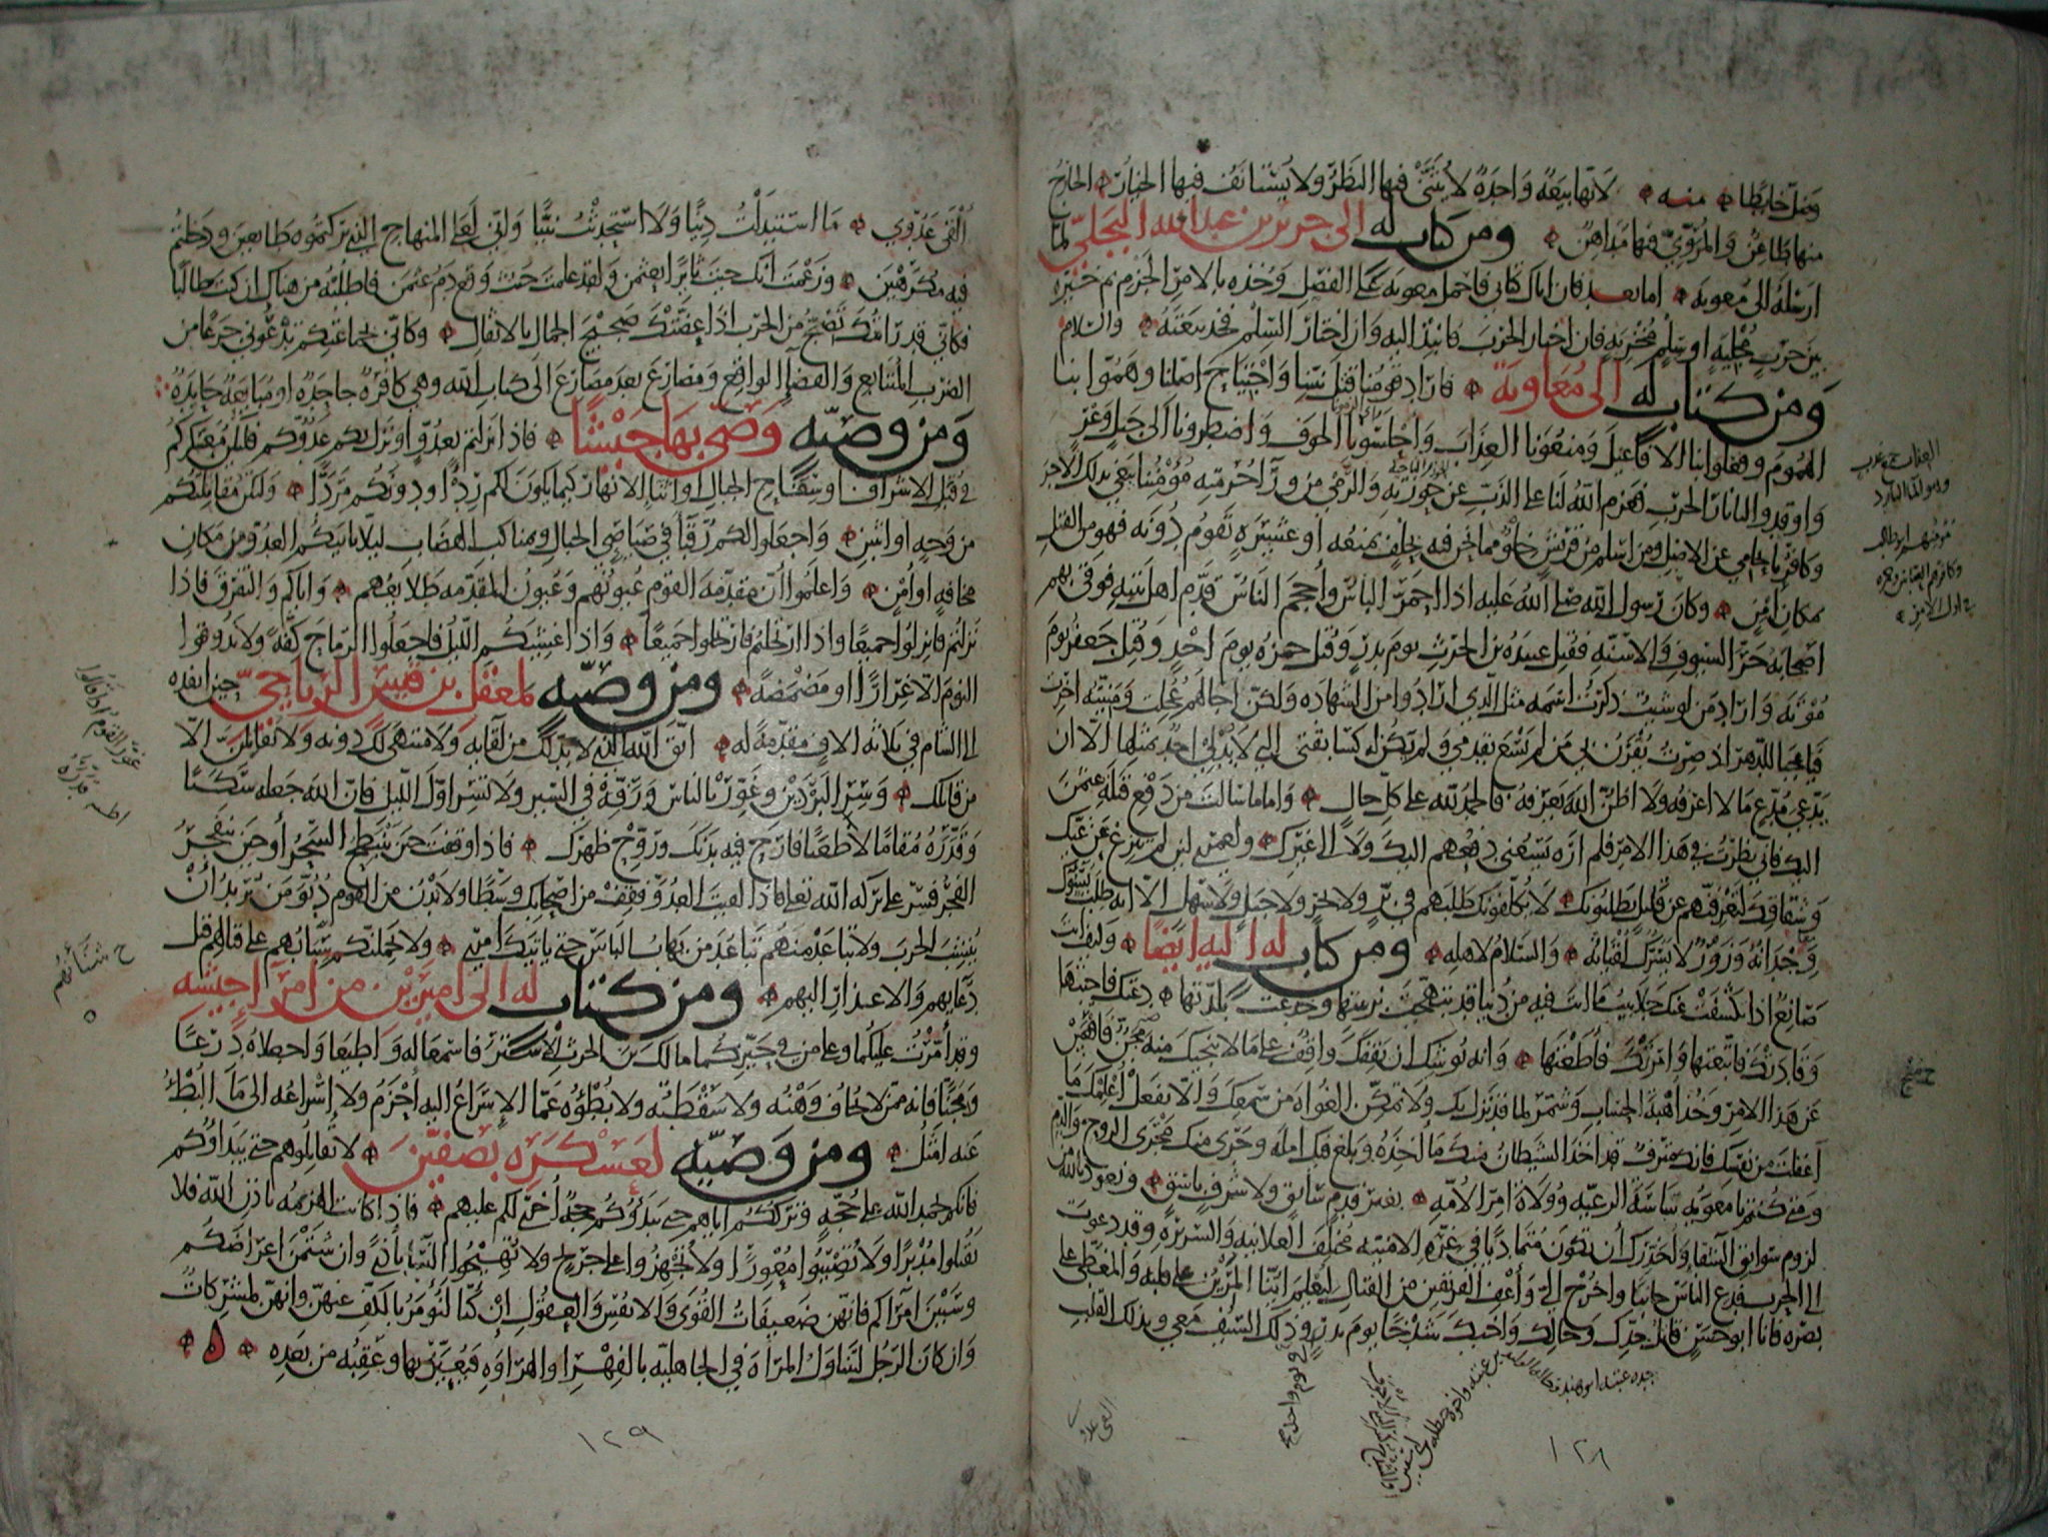 وضل خابطا منه لانها بيعة واحدة لا يثنى فيها النظر ولا يستانف فيها الخيار الخارج
منها طاعن والمروي فيها مداهن ومن كتاب له الى جرير بن عبد الله البجلي لما
ارسله الى معوية اما بعد فاذا اتاك كتابي فاحمل معوية على الفصل وخذه بالامر الجزم ثم خيره
بين حرب مجلية او سلم مخزية فان اختار الحرب فانبذ اليه وان اختار السلم فخذ بيعته والسلام
ومن كتاب له الى معاوية فاراد قومنا قتل نبينا واجتياح اصلنا وهموا بنا
الهموم وفعلوا بنا الافاعيل ومنعونا العذاب واحلسونا الخوف واضطرونا الى جبل وعر
واوقدوا لنا نار الحرب فعزم الله لنا على الذب عن حوزته والرمي من ورآ حرمته مؤمننا يبغي بذلك الاجر
وكافرنا يحامي عن الاصل ومن اسلم من قريش خلو مما نحن فيه بحلف يمنعه او عشيرة تقوم دونه فهو من القتل
بمكان امن وكان رسول الله صلى الله عليه اذا احمر الباس واحجم الناس قدم اهل بيته فوقى بهم
اصحابه حر السيوف والاسنة فقتل عبيدة بن الحرث يوم بدر وقتل حمزه يوم احد وقتل جعفر يوم
موتة واراد من لو شيت ذكرت اسمه مثل الذي ارادوا من الشهادة ولكن اجالهم عجلت ومنيته اخرت
فيا عجبا للدهر اذ صرت يقرن بي من لم يسع بقدمي ولم تكن له كسابقتي التي لا يدلي احد بمثلها الا ان
يدعي مدع ما لا اعرفه ولا اظن الله يعرفه فالحمد لله على كل حال واما ما سالت من دفع قتلة عثمن
اليك فاني نظرت في هذا الامر فلم اره يسعني دفعهم اليك ولا الى غيرك ولعمري لئن لم تنزع عن غيك
وشقاقك لتعرفنهم عن قليل يطلبونك لا يكلفونك طلبهم في بر ولا بحر ولا جبل ولا سهل الا انه طلب يسوك
وجدانه وزور لا يسرك لقيانه والسلام لاهله ومن كتاب له اليه ايضا وكيف انت
صانع اذا تكشفت عنك جلابيب ما انت فيه من دنيا قد تبهجت بزينتها وخدعت بلذتها دعتك فاجبتها
وقادتك فاتبعتها وامرتك فاطعتها وانه يوشك ان يقفك واقف على ما لا ينجيك منه مجن فاقعس
عن هذا الامر وخذ اهبة الحساب وشمر لما قد نزل بك ولا تمكن الغواة من سمعك والا تفعل اعلمك ما
اغفلت من نفسك فانك مترف قد اخذ الشيطان منك ماخذه وبلغ فيك امله وجرى منك مجرى الروح والدم
ومتى كنتم يا معوية ساسة الرعية وولاة امر الامة بغير قدم سابق ولا شرف باسق ونعوذ بالله من
لزوم سوابق الشقا واحذرك ان تكون متماديا في غرة الامنية مختلف العلانية والسريرة وقد دعوت
الى الحرب فدع الناس جانبا واخرج الي واعف الفريقين من القتال ليعلم اينا المرين على قلبه والمغطى على
بصره فانا ابو حسن قاتل جدك وخالك واخيك شدخا يوم بدر وذلك السيف معي وبذلك القلب
١٢٨
القى عدوي ما استبدلت دينا ولا استحدثت نبيا واني لعلى المنهاج الذي تركتموه طايعين ودخلتم
فيه مكرهين وزعمت انك جئت ثايرا بعثمن ولقد علمت حيث وقع دم عثمن فاطلبه من هناك ان كنت طالبا
فكاني قد رايتك تضج من الحرب اذا عضتك ضجيج الجمال بالاثقال وكاني بجماعتك تدعوني جزعا من
الضرب المتتابع والقضا الواقع ومصارع بعد مصارع الى كتاب الله وهي كافرة جاحدة او مبايعة حايدة
ومن وصية وصى بها جيشا فاذا نزلتم بعدو او نزل بكم عدوكم فليكن معسكركم
في قبل الاشراف او سفاح الجبال واثنا الانهار كيما يكون لكم ردءا ودونكم مردا ولتكن مقاتلتكم
من وجه او اثنين واجعلوا لكم رقبا في صياصي الجبال ومناكب الهضاب ليلا ياتيكم العدو من مكان
مخافة او امن واعلموا ان مقدمة القوم عيونهم وعيون المقدمة طلايعهم واياكم والتفرق فاذا
نزلتم فانزلوا جميعا واذا ارتحلتم فارتحلوا جميعا واذا غشيكم الليل فاجعلوا الرماح كفة ولا تذوقوا
النوم الا غرارا او مضمضة ومن وصية لمعقل بن قيس الرياحي حين انفذه
الى الشام في ثلاثة الاف مقدمة له اتق الله الذي لا بد لك من لقايه ولا منتهى لك دونه ولا تقاتلن الا
من قاتلك وسر البردين وغور بالناس ورفه في السير ولا تسر اول الليل فان الله جعله سكنا
وقدره مقاما لا ظعنا فارح فيه بدنك وروح ظهرك فاذا وقفت حين ينبطح السحر او حين ينفجر
الفجر فسر على بركة الله تعالى فاذا لقيت العدو فقف من اصحابك وسطا ولا تدن من القوم دنو من يريد ان
ينشب الحرب ولا تباعد منهم تباعد من يهاب الباس حتى ياتيك امري ولا يحملنكم شنانهم على قتالهم قبل
دعايهم والاعذار اليهم ومن كتاب له الى اميرين من امرآ جيشه
وقد امرت عليكما وعلى من في حيزكما مالك بن الحرث الاشتر فاسمعا له واطيعا واجعلاه درعا
ومجنا فانه ممن لا يخاف وهنه ولا سقطته ولا بطؤه عما الاسراع اليه احزم ولا اسراعه الى ما البطء
عنه امثل ومن وصية لعسكره بصفين لا تقاتلوهم حتى يبداوكم
فانكم بحمد الله على حجة وترككم اياهم حتى يبدءوكم حجة اخرى لكم عليهم فاذا كانت الهزيمة باذن الله فلا
تقتلوا مدبرا ولا تصيبوا معورا ولا تجهزوا على جريح ولا تهيجوا النسا باذى وان شتمن اعراضكم
وسببن امرآكم فانهن ضعيفات القوى والانفس والعقول ان كنا لنؤمر بالكف عنهن وانهن لمشركات
وان كان الرجل ليتناول المراة في الجاهلية بالفهر او الهراوة فيعير بها وعقبه من بعده
١٢٩